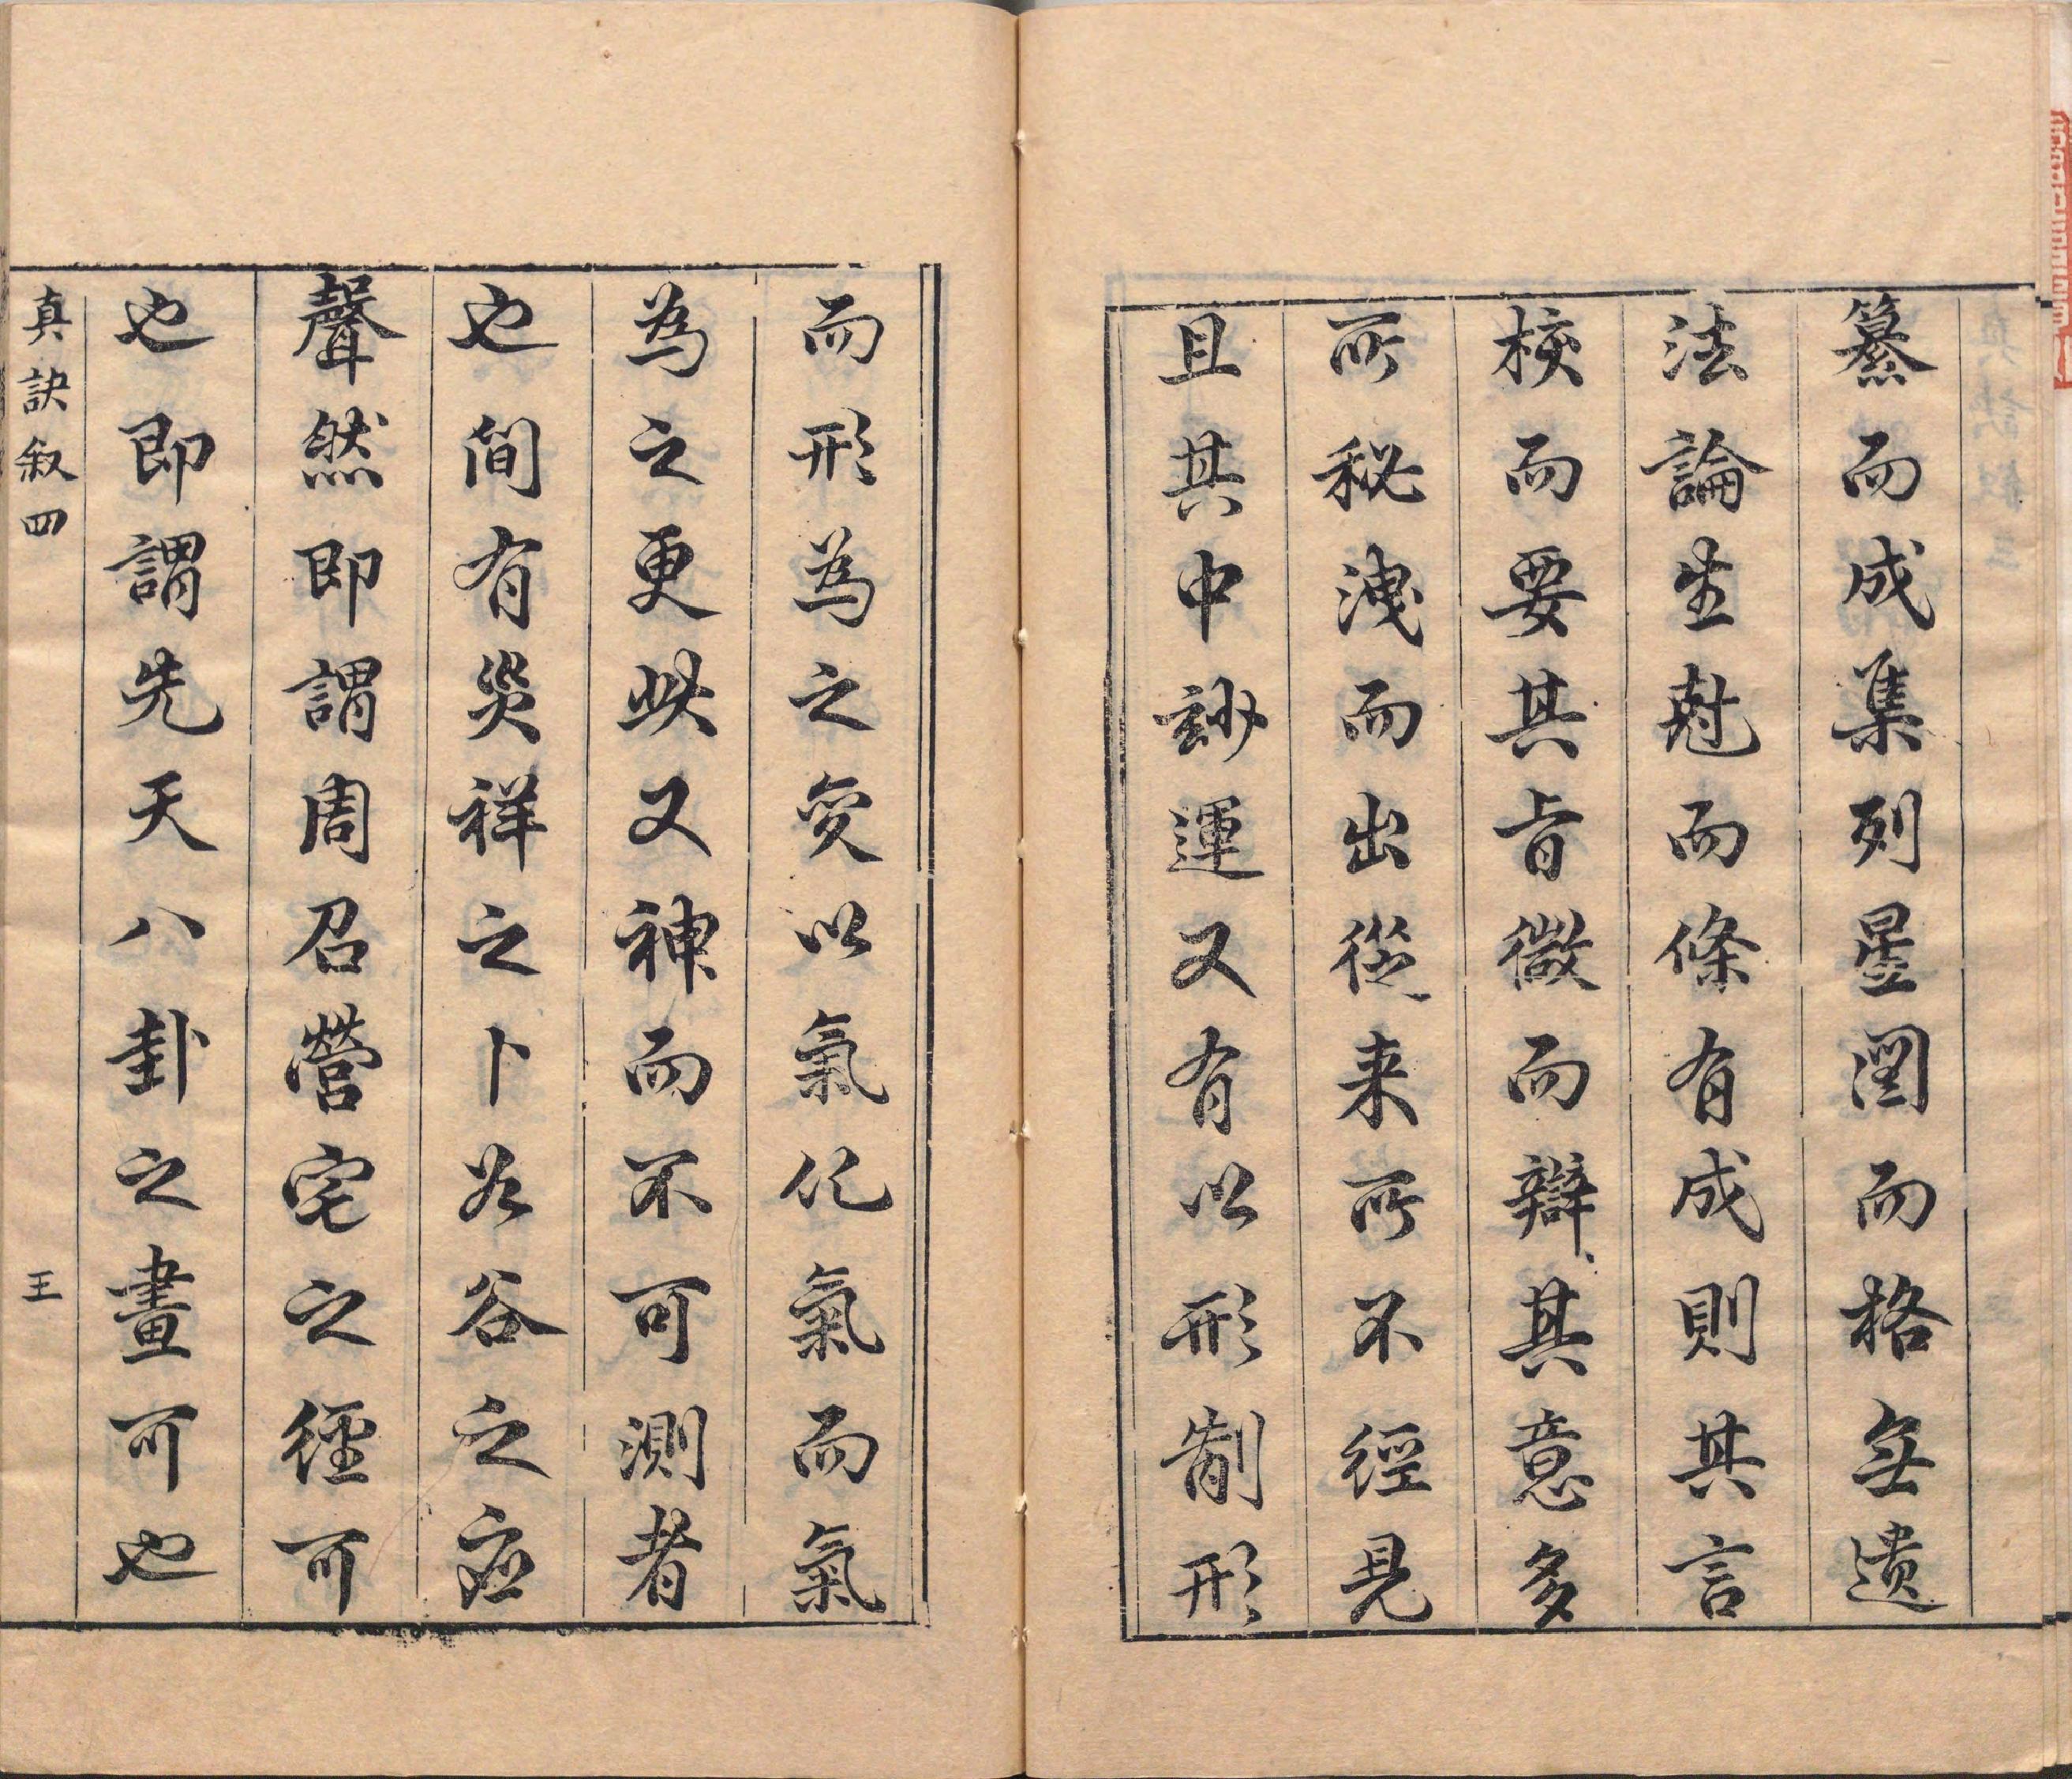 纂而成集列星圖而格無遺
法論生尅而條有成則其言
校而要其旨微而辯其意多
所秘洩而出從来所不經見
且其中玅運又有以形制形
而形為之变以氣化氣而氣
為之更此又神而不可測者
也间有災祥之卜若谷之应
聲然即謂周召營宅之經可
也即謂先天八卦之畫可也
真訣叙四
王